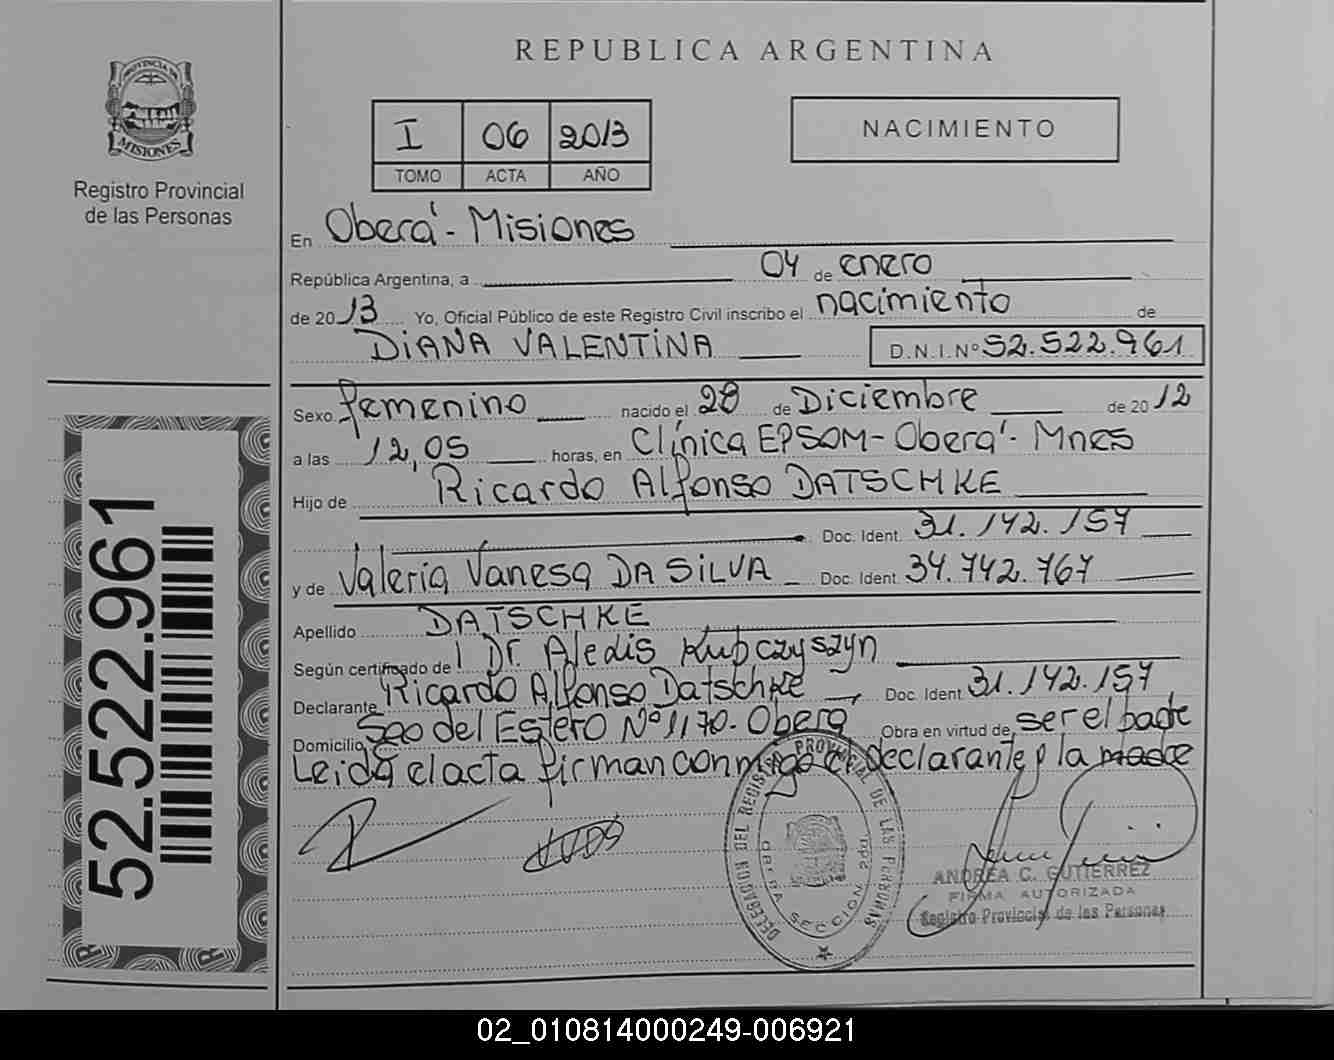 REPUBLICA ARGENTINA
PROVINCIA DE
MISIONES
Registro Provincial
de las Personas
I 06 2013
TOMO ACTA AÑO
NACIMIENTO
En Oberá - Misiones
República Argentina, a 04 de enero
de 2013 Yo, Oficial Público de este Registro Civil inscribo el nacimiento de
DIANA VALENTINA D.N.I.Nº 52.522.961
Sexo femenino nacido el 28 de Diciembre de 2012
a las 12,05 horas, en Clínica EPSOM - Oberá - Mnes
Hijo de Ricardo Alfonso DATSCHKE
Doc. Ident. 31.142.157
y de Valeria Vanesa DA SILVA Doc. Ident. 34.742.767
Apellido DATSCHKE
Según certificado de Dr. Alexis Kubczyszyn
Declarante Ricardo Alfonso Datschke Doc. Ident 31.142.157
Domicilio Sgo del Estero Nº 1170 - Oberá Obra en virtud de ser el padre
Leida el acta firman conmigo el declarante y la madre
DELEGACION DEL REGISTRO PROVINCIAL DE LAS PERSONAS
OBERA SECCION 2da
ANDREA C. GUTIERREZ
FIRMA AUTORIZADA
Registro Provincial de las Personas
52.522.961
02_010814000249-006921